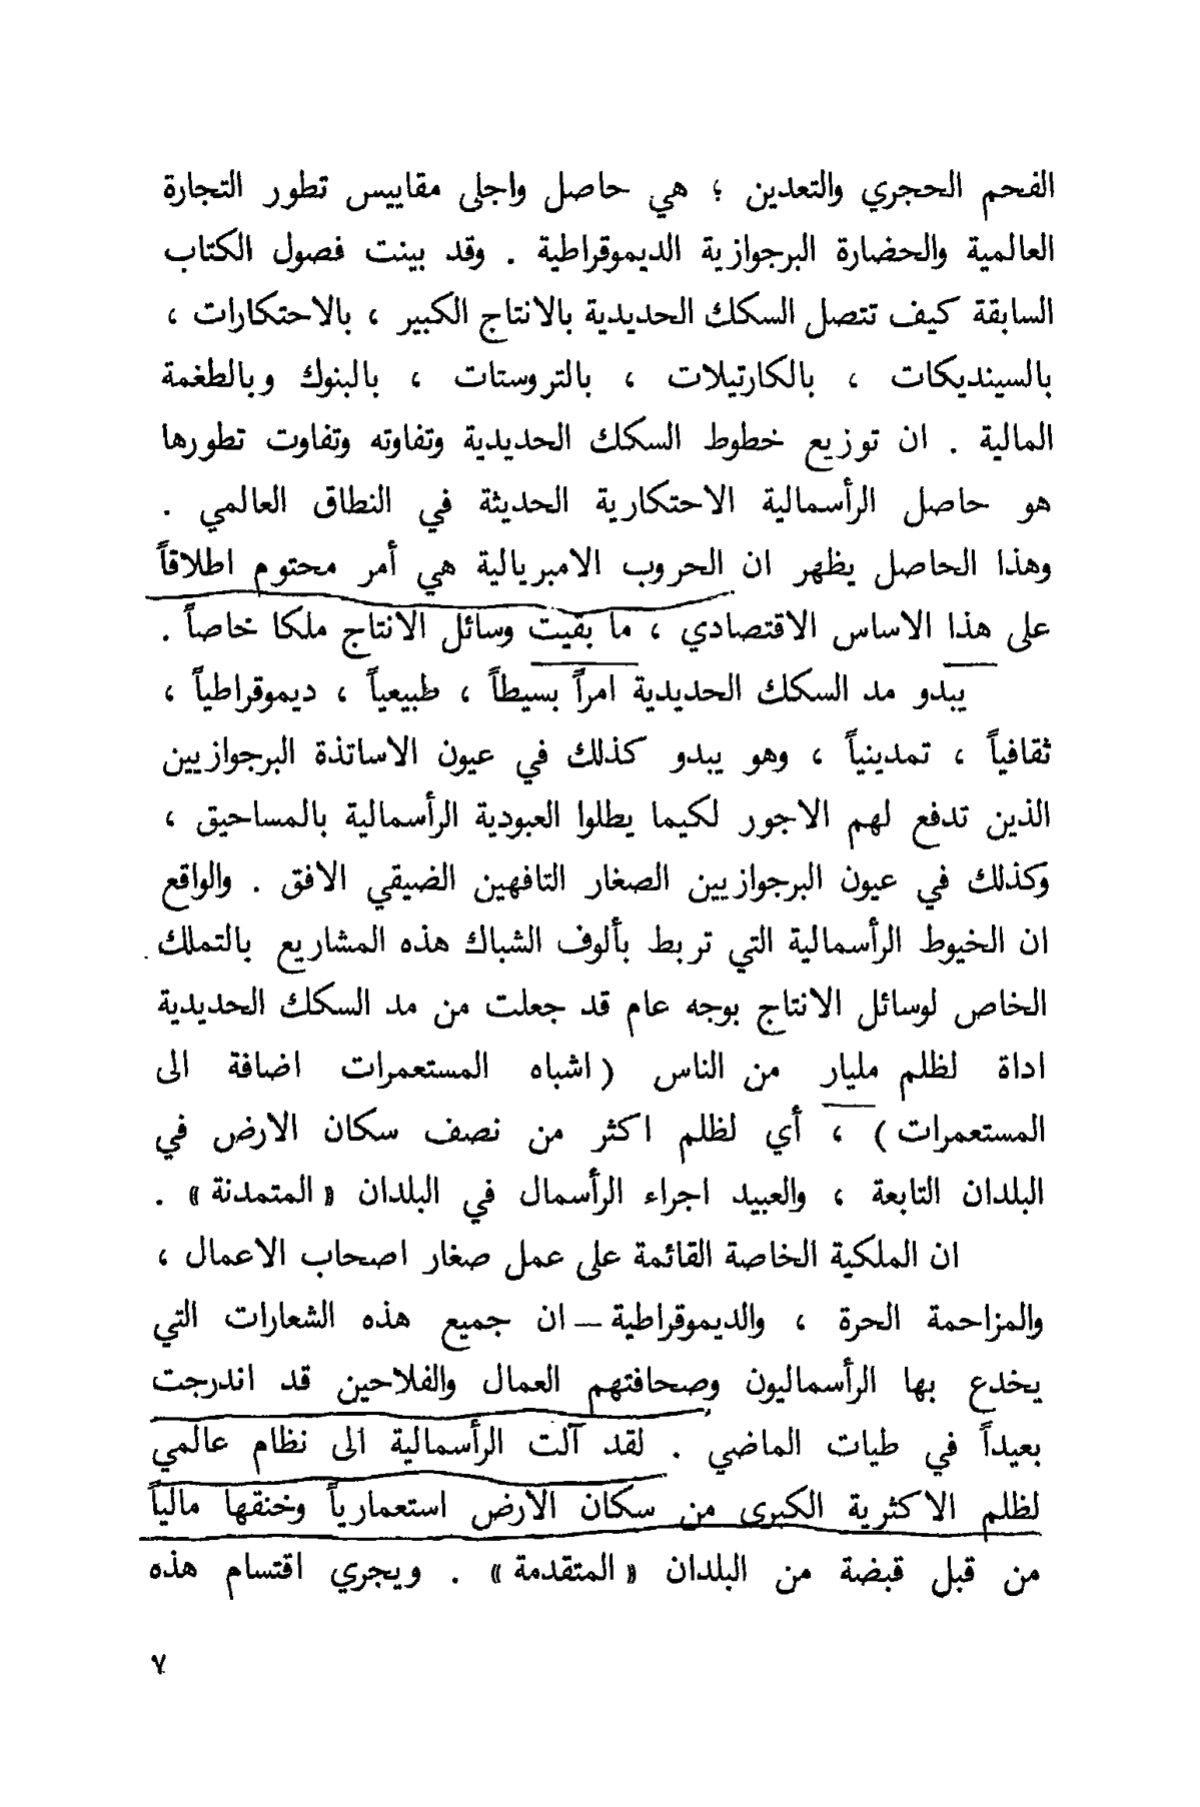 الفحم الحجري والتعدين ؛ هي حاصل واجلى مقاييس تطور التجارة
العالمية والحضارة البرجوازية الديموقراطية . وقد بينت فصول الكتاب
السابقة كيف تتصل السكك الحديدية بالانتاج الكبير ، بالاحتكارات ،
بالسينديكات ، بالكارتيلات ، بالتروستات ، بالبنوك وبالطغمة
المالية . ان توزيع خطوط السكك الحديدية وتفاوته وتفاوت تطورها
هو حاصل الرأسمالية الاحتكارية الحديثة في النطاق العالمي .
وهذا الحاصل يظهر ان الحروب الامبريالية هي أمر محتوم اطلاقاً
على هذا الاساس الاقتصادي ، ما بقيت وسائل الانتاج ملكا خاصاً .
يبدو مد السكك الحديدية امراً بسيطاً ، طبيعياً ، ديموقراطياً ،
ثقافياً ، تمدينياً ، وهو يبدو كذلك في عيون الاساتذة البرجوازيين
الذين تدفع لهم الاجور لكيما يطلوا العبودية الرأسمالية بالمساحيق ،
وكذلك في عيون البرجوازيين الصغار التافهين الضيقي الافق . والواقع
ان الخيوط الرأسمالية التي تربط بألوف الشباك هذه المشاريع بالتملك
الخاص لوسائل الانتاج بوجه عام قد جعلت من مد السكك الحديدية
اداة لظلم مليار من الناس ( اشباه المستعمرات اضافة الى
المستعمرات ) ، أي لظلم اكثر من نصف سكان الارض في
البلدان التابعة ، والعبيد اجراء الرأسمال في البلدان « المتمدنة » .
ان الملكية الخاصة القائمة على عمل صغار اصحاب الاعمال ،
والمزاحمة الحرة ، والديموقراطية – ان جميع هذه الشعارات التي
يخدع بها الرأسماليون وصحافتهم العمال والفلاحين قد اندرجت
بعيداً في طيات الماضي . لقد آلت الرأسمالية الى نظام عالمي
لظلم الاكثرية الكبرى من سكان الارض استعمارياً وخنقها مالياً
من قبل قبضة من البلدان « المتقدمة » . ويجري اقتسام هذه
٧